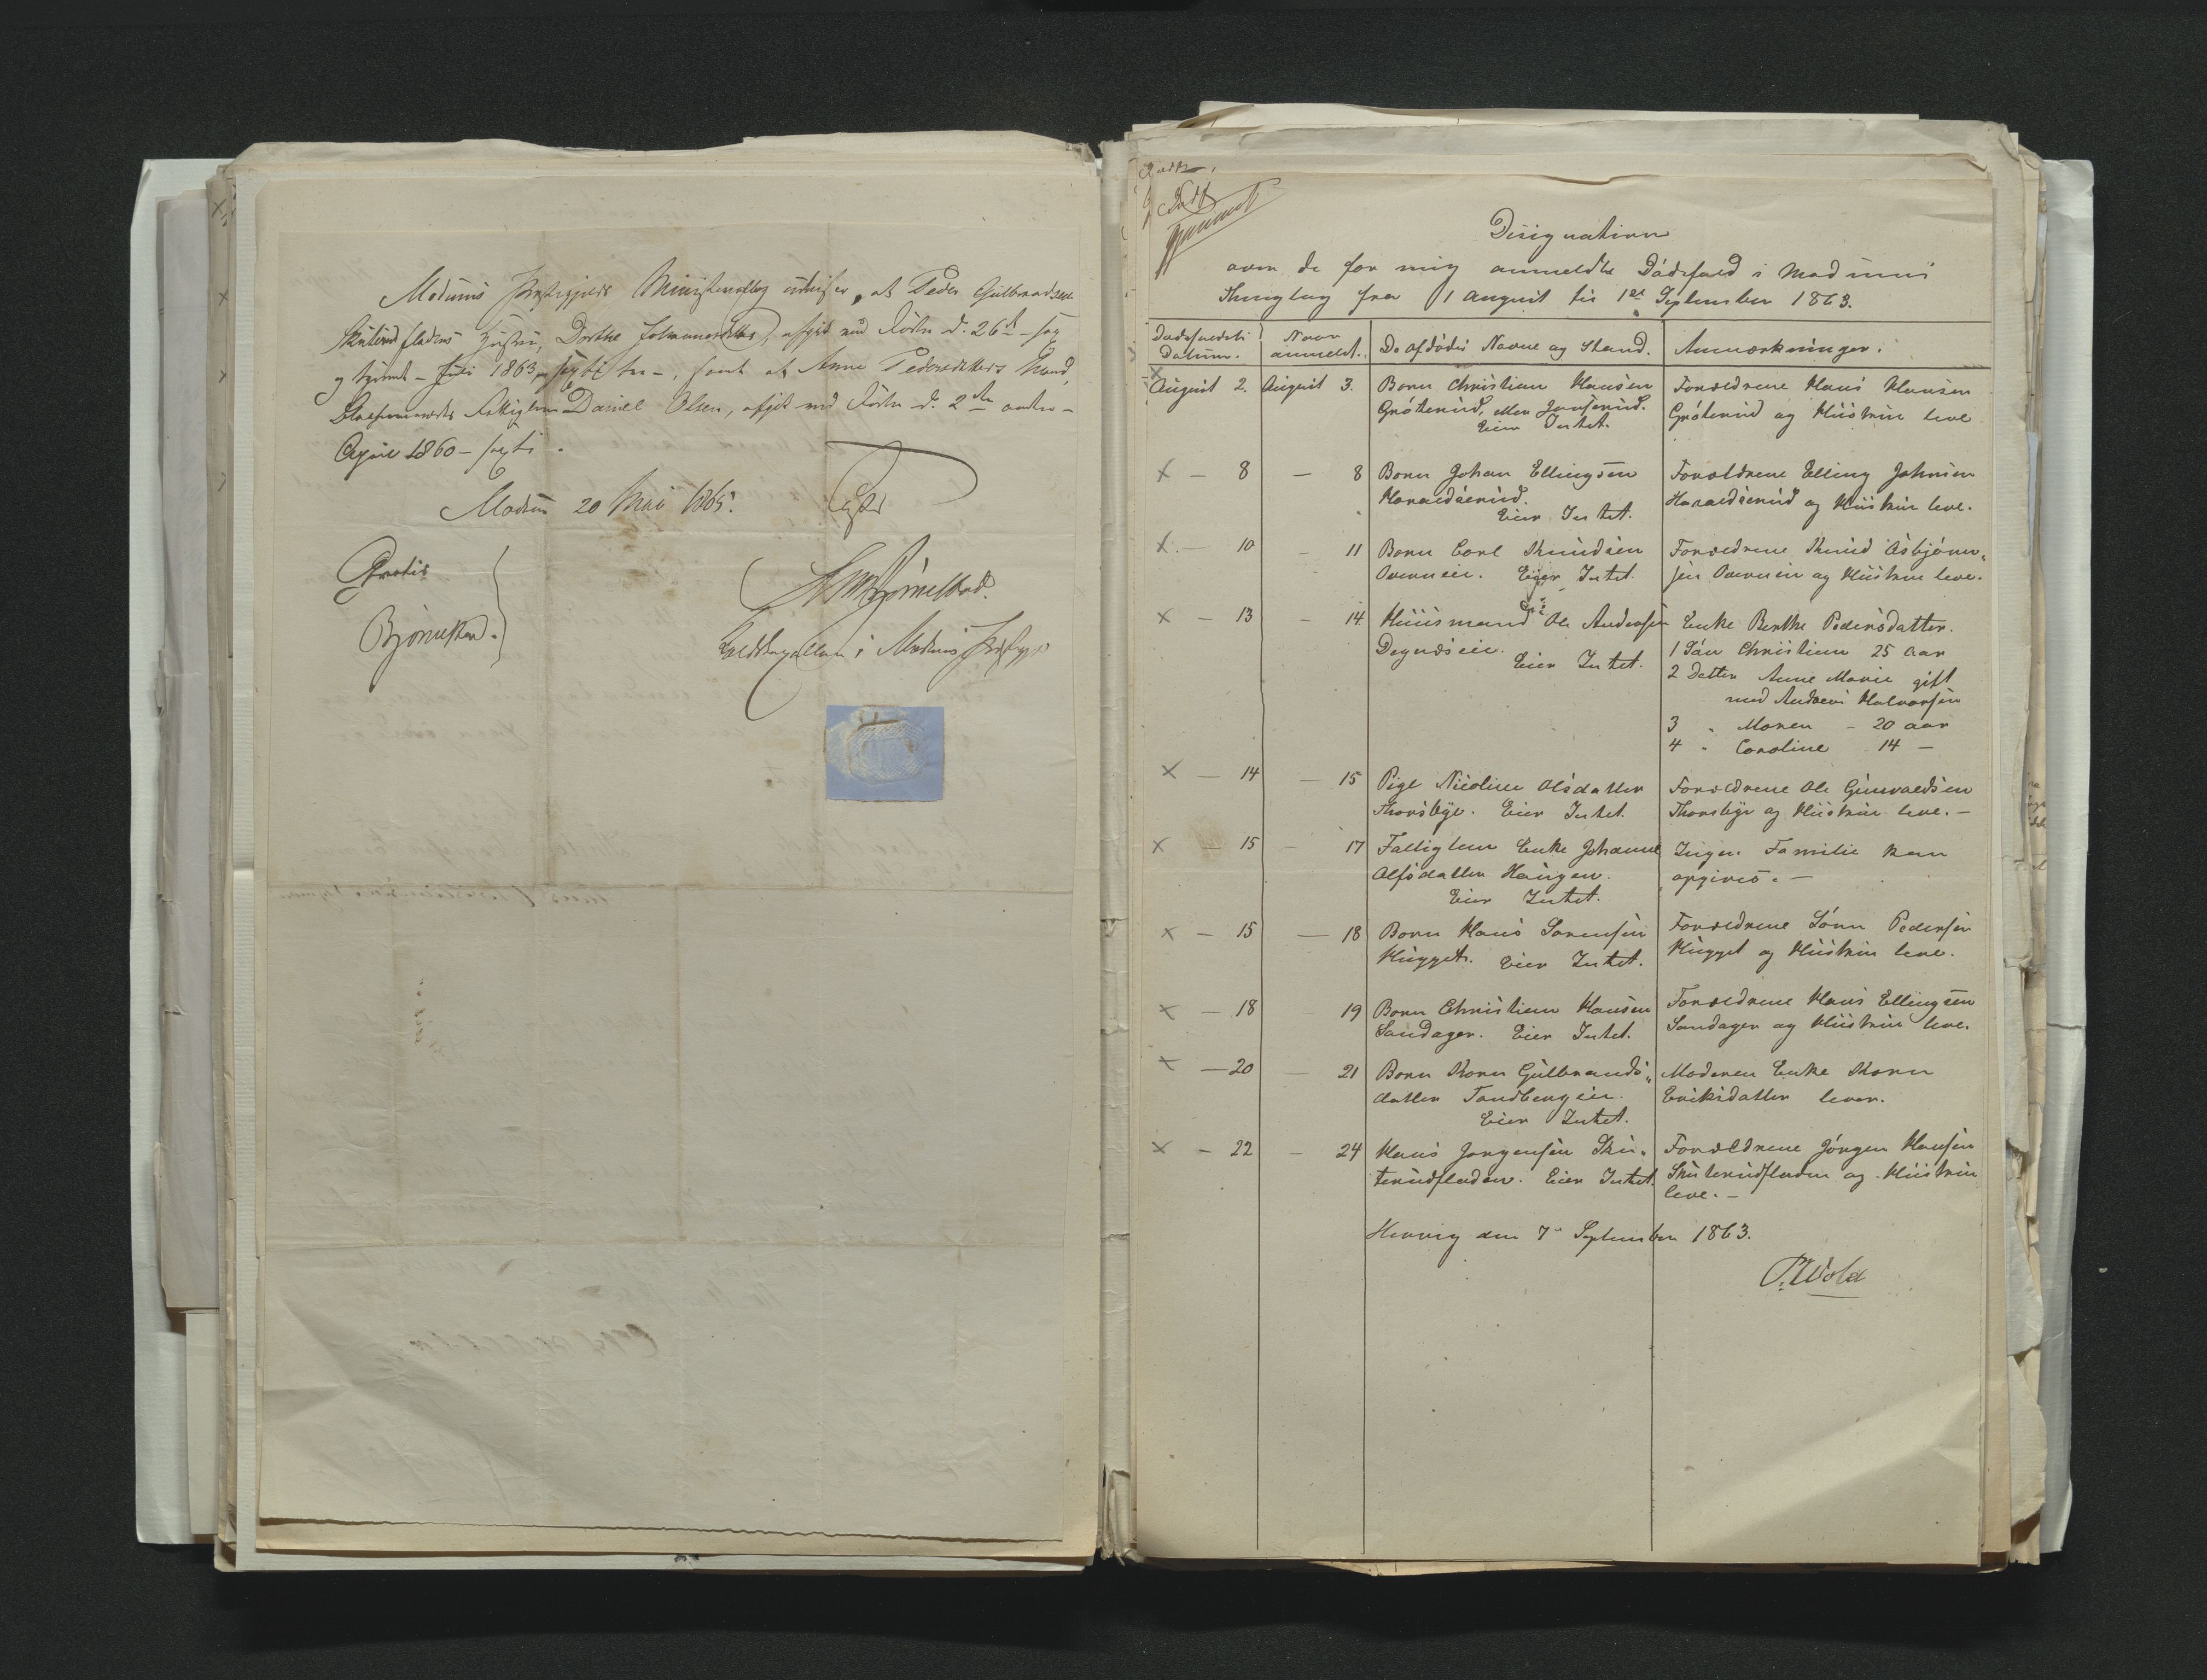 Modums Præstegjelds Ministerialbog udviser, at Peder Gulbrandsen
Skuterudfladens Hustru, Dorthe afgik ved Døden d. 26de - sex
og tyvende - Juli 1863 - sexti tre -, samt at Anne Pedersdatters Mand,
Daniel Olsen, afgik ved Døden d. 2den anden -
April 1860 - sexti.
Modum 20 Mai 1865.
Gratis
Bjørnstad.
i Modums Præstegj.
Designation
over de for mig anmeldte Dødsfald i Modums
Thinglag fra 1 August til 1st September 1863.
Dødsfaldets Datum.
Naar anmeldt.
De afdødes Navne og Stand.
Anmærkninger.
August 2. August 3. Barn Christian Hansen Forældrene Hans Hansen
Gróterud, eller Eier Intet. Gróterud og Hüstrue leve
x - 8 - 8 Barn Johan Ellingsen Forældrene Elling Johnsen
Haraldserud. Eier Intet. Haraldserud og Hüstrue leve.
x - 10 - 11 Barn Carl Knudsen Forældrene Knud Asbjørn-
Overneie. Eier Intet. sen Overneie og Hüstrue leve.
x - 13 - 14. Huusmand Ole Andersen Enke Berthe Pedersdatter.
Degnæseie. Eier Intet. 1 Søn Christian 25 aar
2 Datter Anne Marie gift
med Andreas Halvorsen
3 " Maren - 20 aar
4 " Caroline 14 -
x - 14 - 15 Pige Nicoline Olsdatter Forældrene Ole Gunvaldsen
Thorsbye. Eier Intet. Thorsbye og Hüstrue leve. -
x - 15 - 17 Fattiglem Enke Johanne Ingen Familie kan
Alfsdatter Haugen. opgives. -
Eier Intet.
x - 15 - 18 Barn Hans Sørensen Forældrene Sørn Pedersen
Hugget. Eier Intet. Hugget og Hüstrue leve.
x - 18 19 Barn Christian Hansen Forældrene Hans Ellingsen
Sandager. Eier Intet. Sandager og Hüstrue leve.
x - 20 - 21 Barn Karn Gulbrands- Moderen Enke Karn
datter Tandbergeie. Eriksdatter lever.
Eier Intet.
x - 22 - 24 Hans Jørgensen Sku- Forældrene Jørgen Hansen
terudfladen. Eier Intet. Skuterudfladen og Hüstrue
leve. -
Hervig den 7 September 1863.
P. Wold